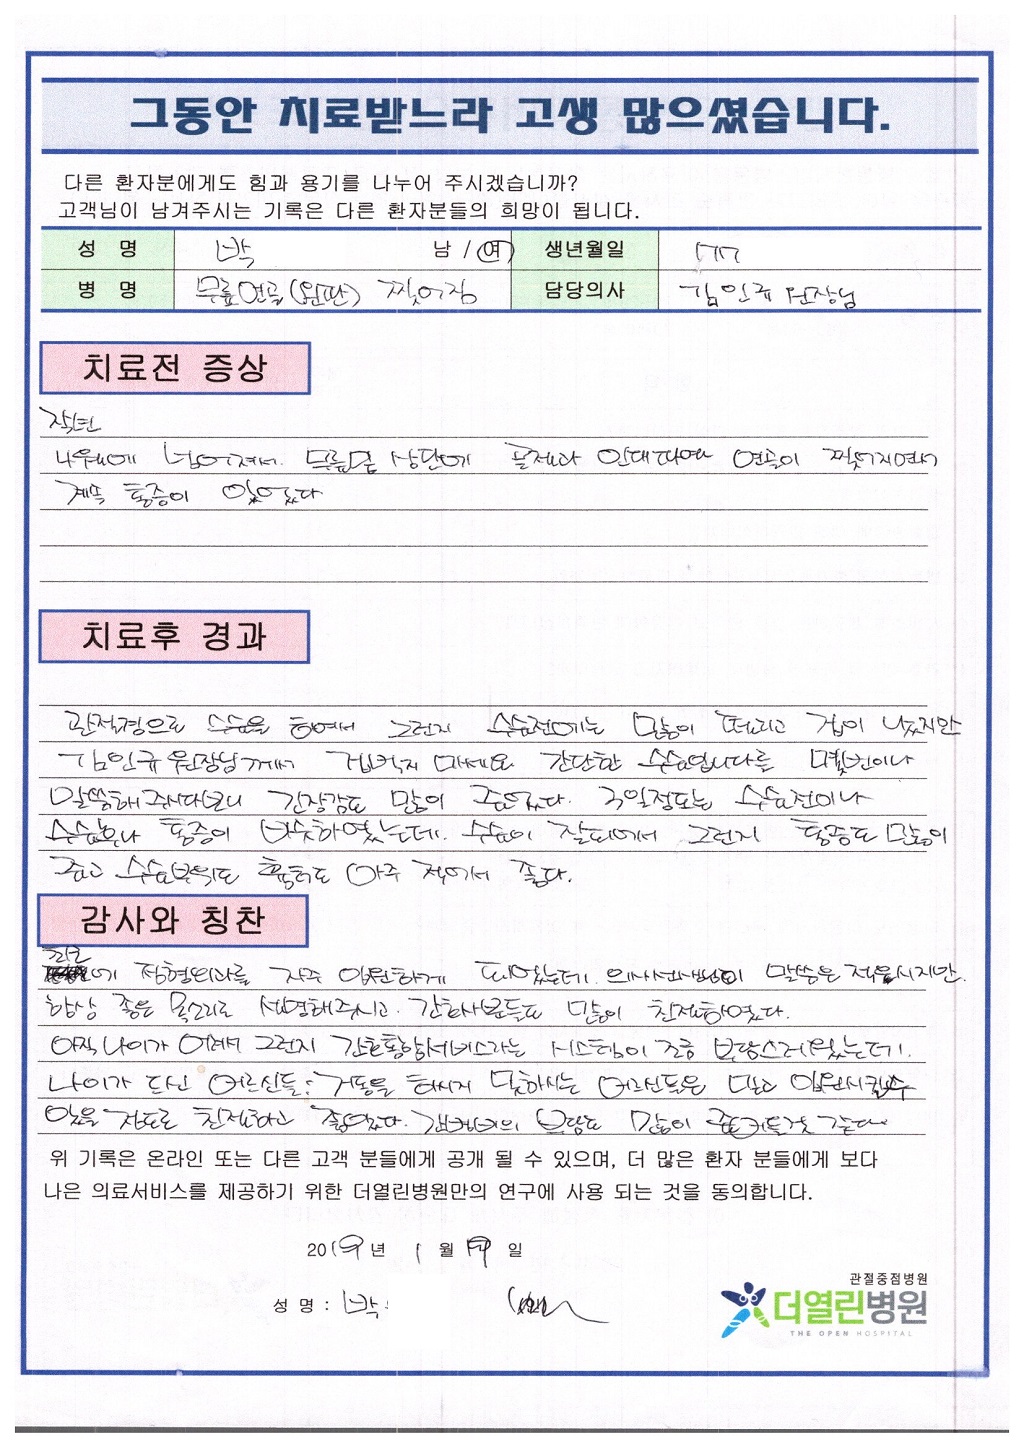 그동안 치료받느라 고생 많으셨습니다.
다른 환자분에게도 힘과 용기를 나누어 주시겠습니까?
고객님이 남겨주시는 기록은 다른 환자분들의 희망이 됩니다.
성 명 박 남 / 여 생년월일 77
병 명 무릎연골(원판) 찢어짐 담당의사 김인규 원장님
치료전 증상
작년
넘어져서 상단에 문제와 인대파열 연골이 찢어지면서
계속 통증이 있었다
치료후 경과
관절경으로 수술을 하여서 그런지 수술전에는 많이 떨리고 겁이 났지만
김인규 원장님께서 겁먹지 마세요 간단한 수술입니다를 몇번이나
말씀해 주시다보니 긴장감도 많이 줄었다. 3일정도는 수술전이나
수술후나 통증이 비슷하였는데. 수술이 잘되어서 그런지 통증도 많이
줄고 수술부위도 흉터도 아주 적어서 좋다.
감사와 칭찬
최근에 정형외과를 자주 입원하게 되었는데. 의사선생님이 말씀은 적으시지만.
항상 좋은 목소리로 설명해주시고. 간호사분들도 많이 친절하였다.
아직 나이가 어려서 그런지 간호통합서비스라는 시스템이 조금 부담스러웠는데.
나이가 드신 어르신들: 거동을 하시지 못하시는 어르신들은 믿고 입원시킬수
있을 정도로 친절하고 좋았다. 간병비의 부담도 많이 줄여들것 같다
위 기록은 온라인 또는 다른 고객 분들에게 공개 될 수 있으며, 더 많은 환자 분들에게 보다
나은 의료서비스를 제공하기 위한 더열린병원만의 연구에 사용 되는 것을 동의합니다.
2019 년 1 월 일
성 명 : 박
관절중점병원
더열린병원
THE OPEN HOSPITAL